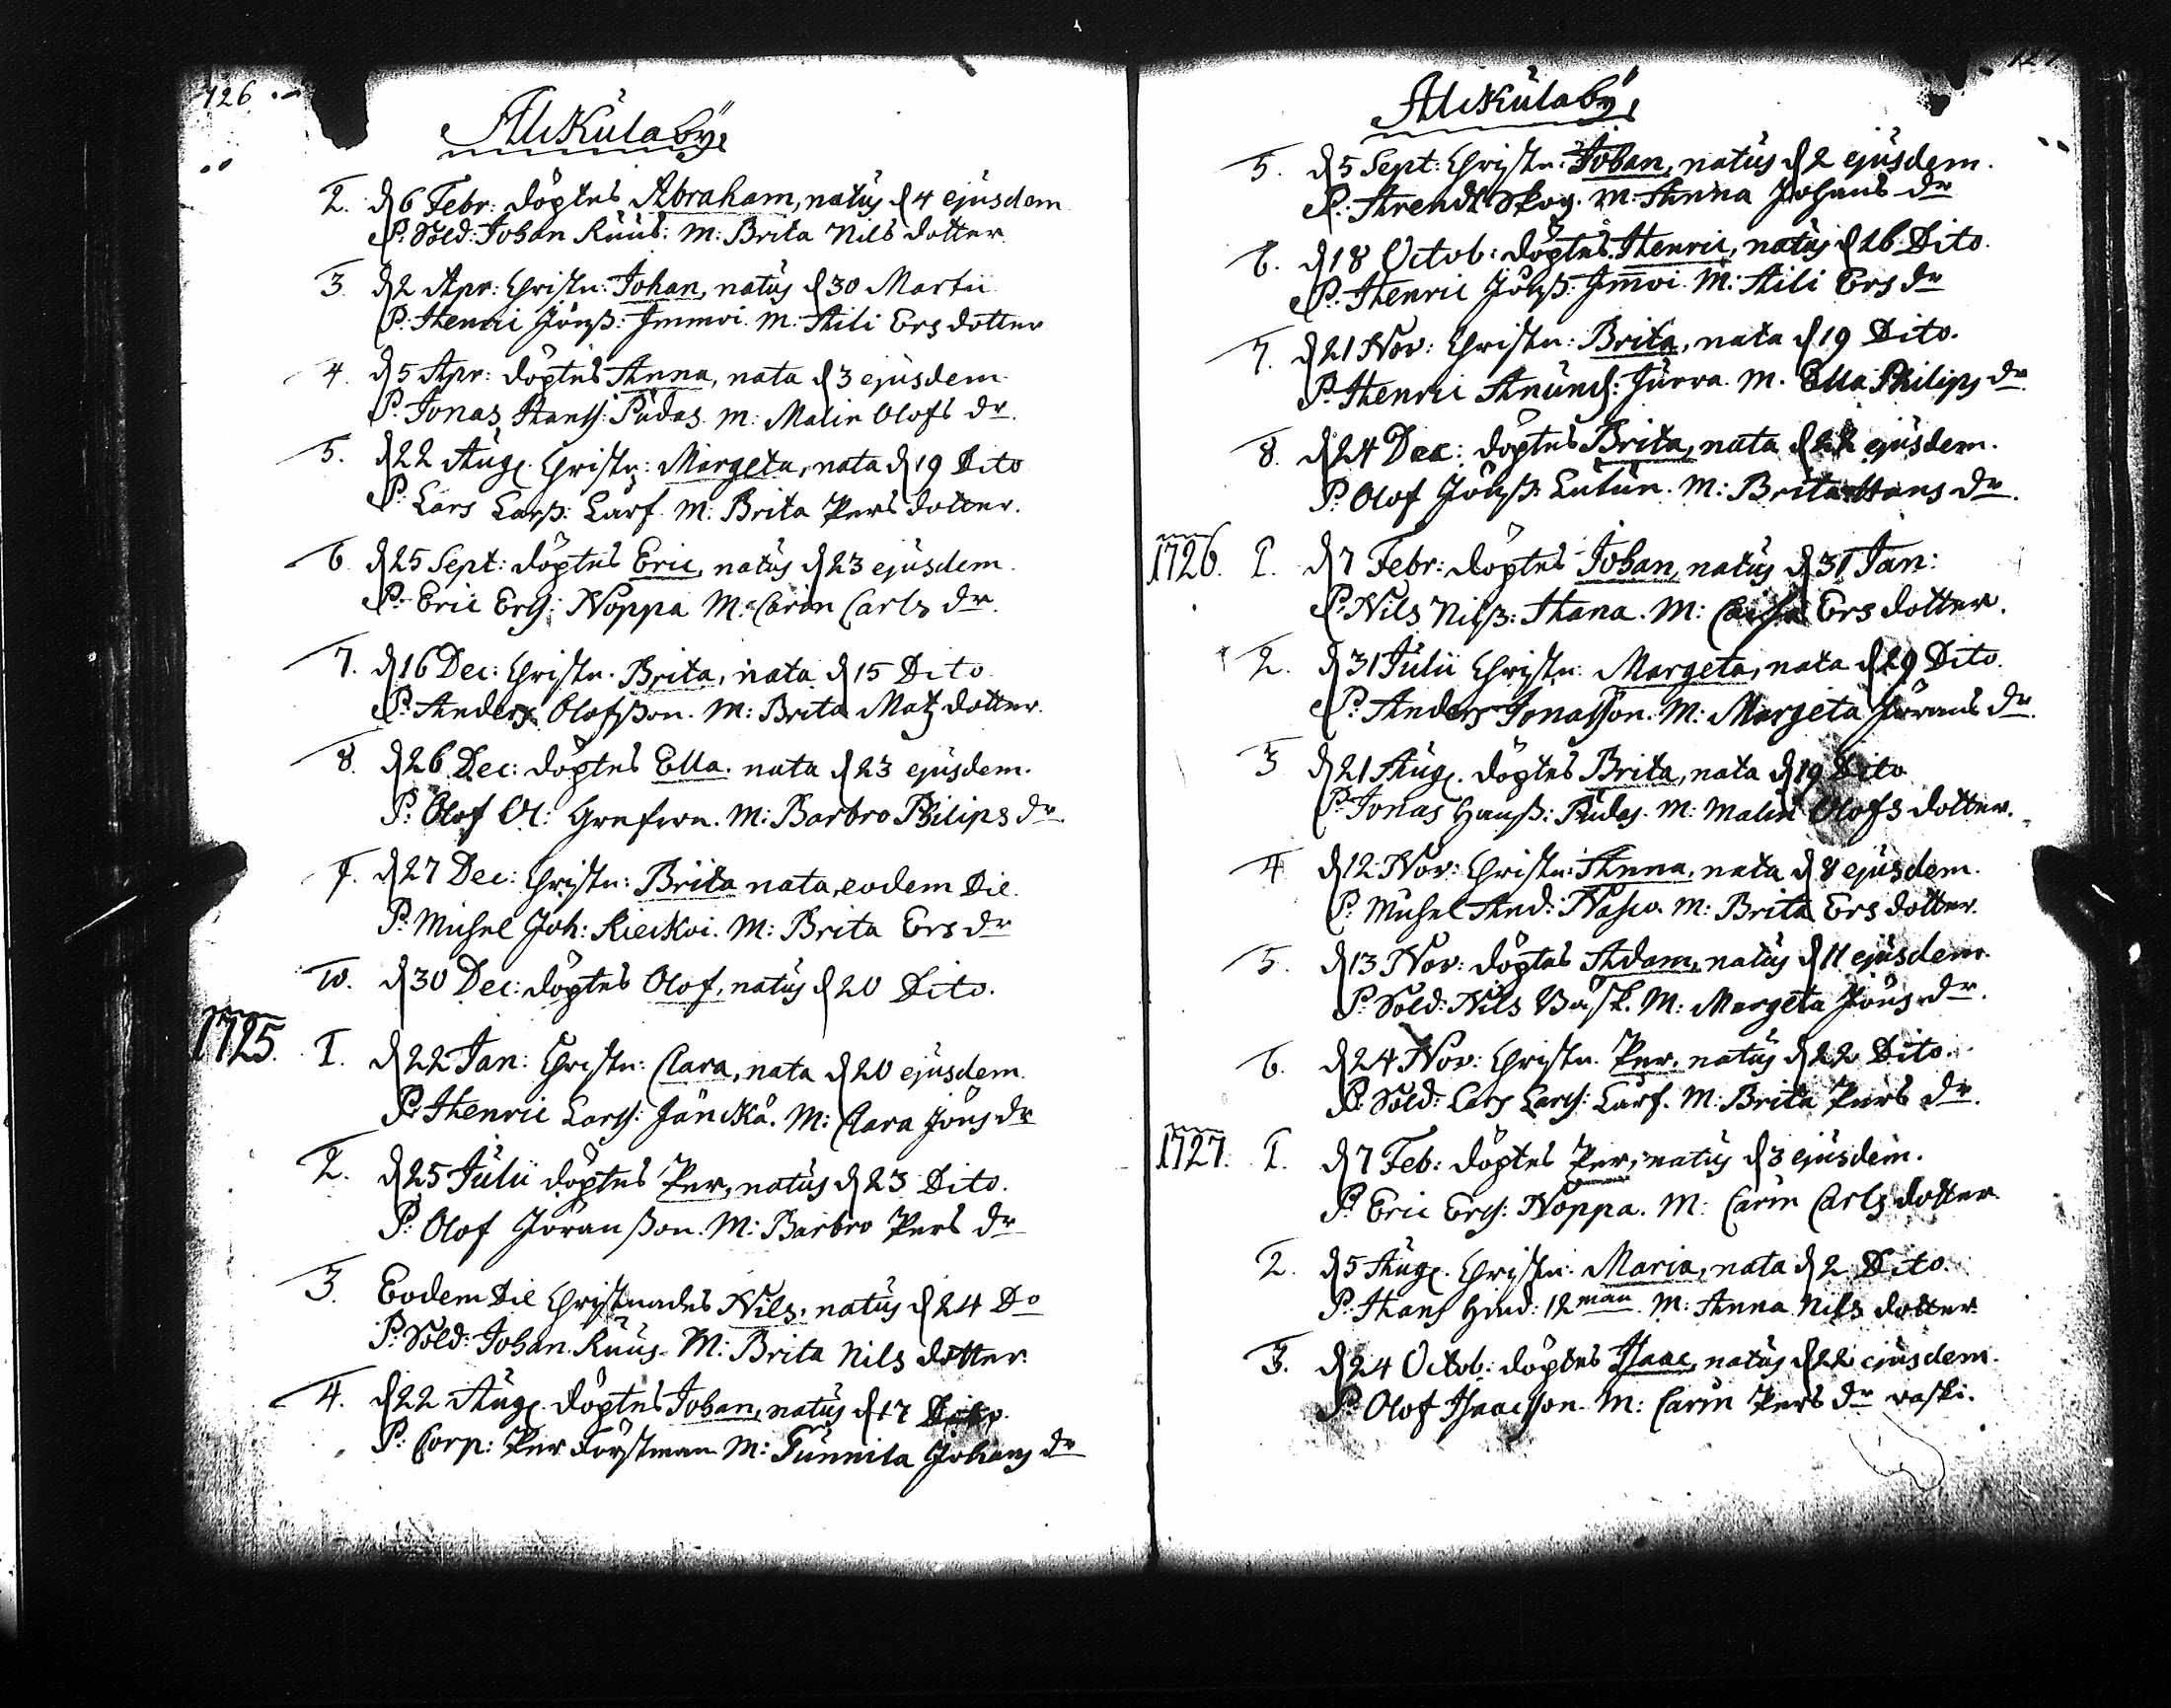 126.
Alikülaby,
2. d 6 Febr: döptes Abraham, natus d 4 ejusdem
P: Sold: Johan Ruus: M: Brita Nils dotter.
3. d 2 Apr: Christn: Johan, natus d 30 Martii
P: Henri Jönß: Immoi. M: Aili Ers dotter
4. d 5 Apr: döptes Anna, nata d 3 ejusdem
P. Jonas Hansß: Pudas. M: Malin Olofs dr.
5. d 22 Aug. Christn: Margeta, nata d 19 Dito
P: Lars Larß: Larf. M: Brita Pers dotter.
6. d 25 Sept: döptes Eric, natus d 23 ejusdem.
P: Eric Ersß: Noppa M: Carin Carls dr.
7. d 16 Dec: Christn. Brita, nata d 15 Dito
P: Anders Olofsson. M: Brita Matz dotter.
8. d 26 Dec: döptes Ella. nata d 23 ejusdem.
P: Olof Ol: M: Barbro Philips dr
9. d 27 Dec: Christn: Brita nata eodem Die
P: Michel Joh: Kieckoi. M: Brita Ers dr
10. d 30 Dec: döptes Olof, natus d 20 Dito.
1725. 1. d 22 Jan: Christn: Clara, nata d 20 ejusdem.
P: Henric Larsß: Jänckä. M: Clara Jöns dr
2. d 25 Julii döptes Per, natus d 23 Dito.
P: Olof Jöranßon. M: Barbro Pers dr
3. Eodem Die Christnades Nils, natus d 24 Do
P: Sold: Johan Ruus. M: Brita Nils dotter.
4. d 22 Aug. döptes Johan, natus d 17 Dito.
P: Corp: Per Forstman M: Gunnila Johans dr
127
Alikülaby,
5. d 5 Sept: Christn: Johan, natus d 2 ejusdem.
P: Arendt Skog. M: Anna Johans dr
6. d 18 Octob: döptes Henric, natus d 16 Dito.
P: Henric Jönß: Immoi. M: Aili Ers dr
7. d 21 Nov: Christn: Brita, nata d 19 Dito.
P: Henric Anundß: Jurva. M. Ella Philips dr.
8. d 24 Dec: döptes Brita, nata d 22 ejusdem.
P: Olof Jönß: Lutun. M: Brita Hans dr.
1726. 1. d 7 Febr: döptes Johan, natus d 31 Jan:
P: Nils Nilß: Hana. M: Ers dotter.
2. d 31 Julii Christn: Margeta, nata d 29 Dito.
P: Anders Jonasson. M: Margeta Jörans dr.
3 d 21 Aug. döptes Brita, nata d 19 Dito
P: Jonas Hanß: Pudas. M: Malin Olofs dotter.
4 d 12 Nov: Christn: Anna, nata d 8 ejusdem.
P: Michel And: M: Brita Ers dotter.
5. d 13 Nov: döptes Adam, natus d 11 ejusdem.
P: Sold: Nils Bask. M: Margeta Jöns dr.
6. d 24 Nov: Christn. Per, natus d 22 Dito.
P: Sold: Lars Larsß: Larf. M: Brita Pers dr.
1727. 1. d 7 Feb: döptes Per, natus d 3 ejusdem.
P: Eric Ersß: Noppa. M: Carin Carls dotter
2. d 5 Aug. Christn: Maria, nata d 2 Dito.
P: Hans Hind: 12man M: Anna Nils dotter
3. d 24 Octob: döptes Isaac, natus d 22 ejusdem.
P: Olof Isaacsson. M: Carin Pers dr vaski.